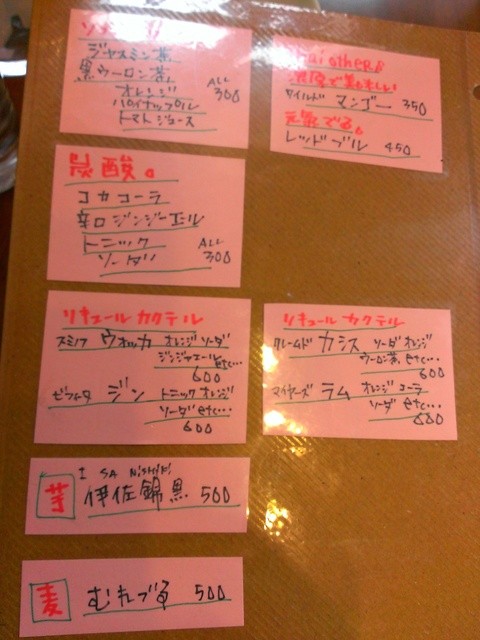 ソフト
ジャスミン茶
黒ウーロン茶
オレンジ
パイナップル
トマトジュース
ALL
300
炭酸。
コカコーラ
辛口ジンジーエール
トニック
ソーダ
ALL
300
リキュールカクテル
スミノフ ウォッカ オレンジ ソーダ
ジンジャエール etc...
600
ビフィータ ジン トニック オレンジ
ソーダ etc...
600
I SA NiSHiKi
芋 伊佐錦黒 500
麦 むれづる 500
others
濃厚で美味しい
ワイルド マンゴー 350
元気でる。
レッドブル 450
リキュールカクテル
クレームド カシス ソーダ オレンジ
ウーロン茶 etc...
600
マイヤーズ ラム オレンジ コーラ
ソーダ etc...
600